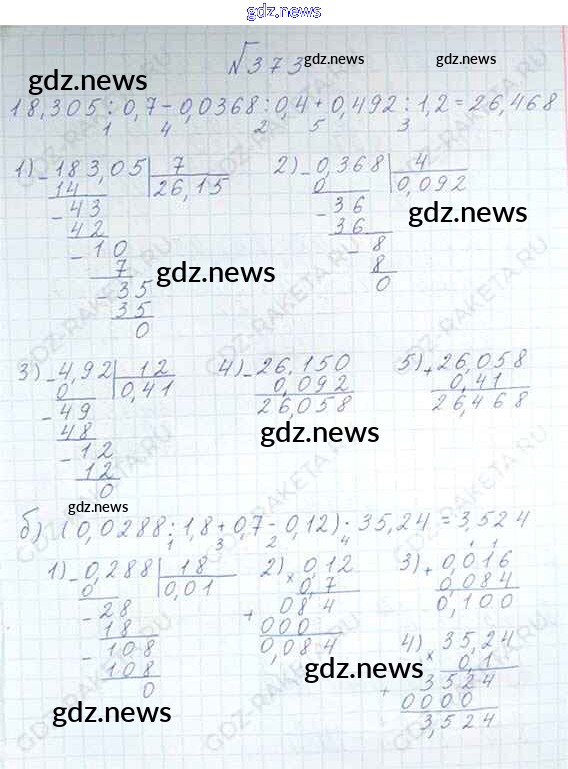 gdz.news
№373
gdz.news
gdz.news
gdz.news
18,305:0,7-0,0368:0,4+0,492:1,2=26,468
1 4 2 5 3
1) -183,05 | 7
14 | 26,15
-43
42
-10
7
-35
35
0
gdz.news
2) -0,368 | 4
0 | 0,092
-36
36
-8
8
0
gdz.news
3) -4,92 | 12
0 | 0,41
-49
48
-12
12
0
4) -26,150
0,092
26,058
5) +26,058
0,41
26,468
gdz.news
gdz.news
б) (0,0288:1,8+0,7·0,12)·35,24=3,524
1 3 2 4
1) -0,288 | 18
0 | 0,01
-28
18
-108
108
0
2) ×0,12
0,7
084
+000
0,084
3) +0,016
0,084
0,100
4) ×35,24
0,1
3524
+0000
3,524
gdz.news
gdz.news
gdz.news
GDZ-RAKETA.RU